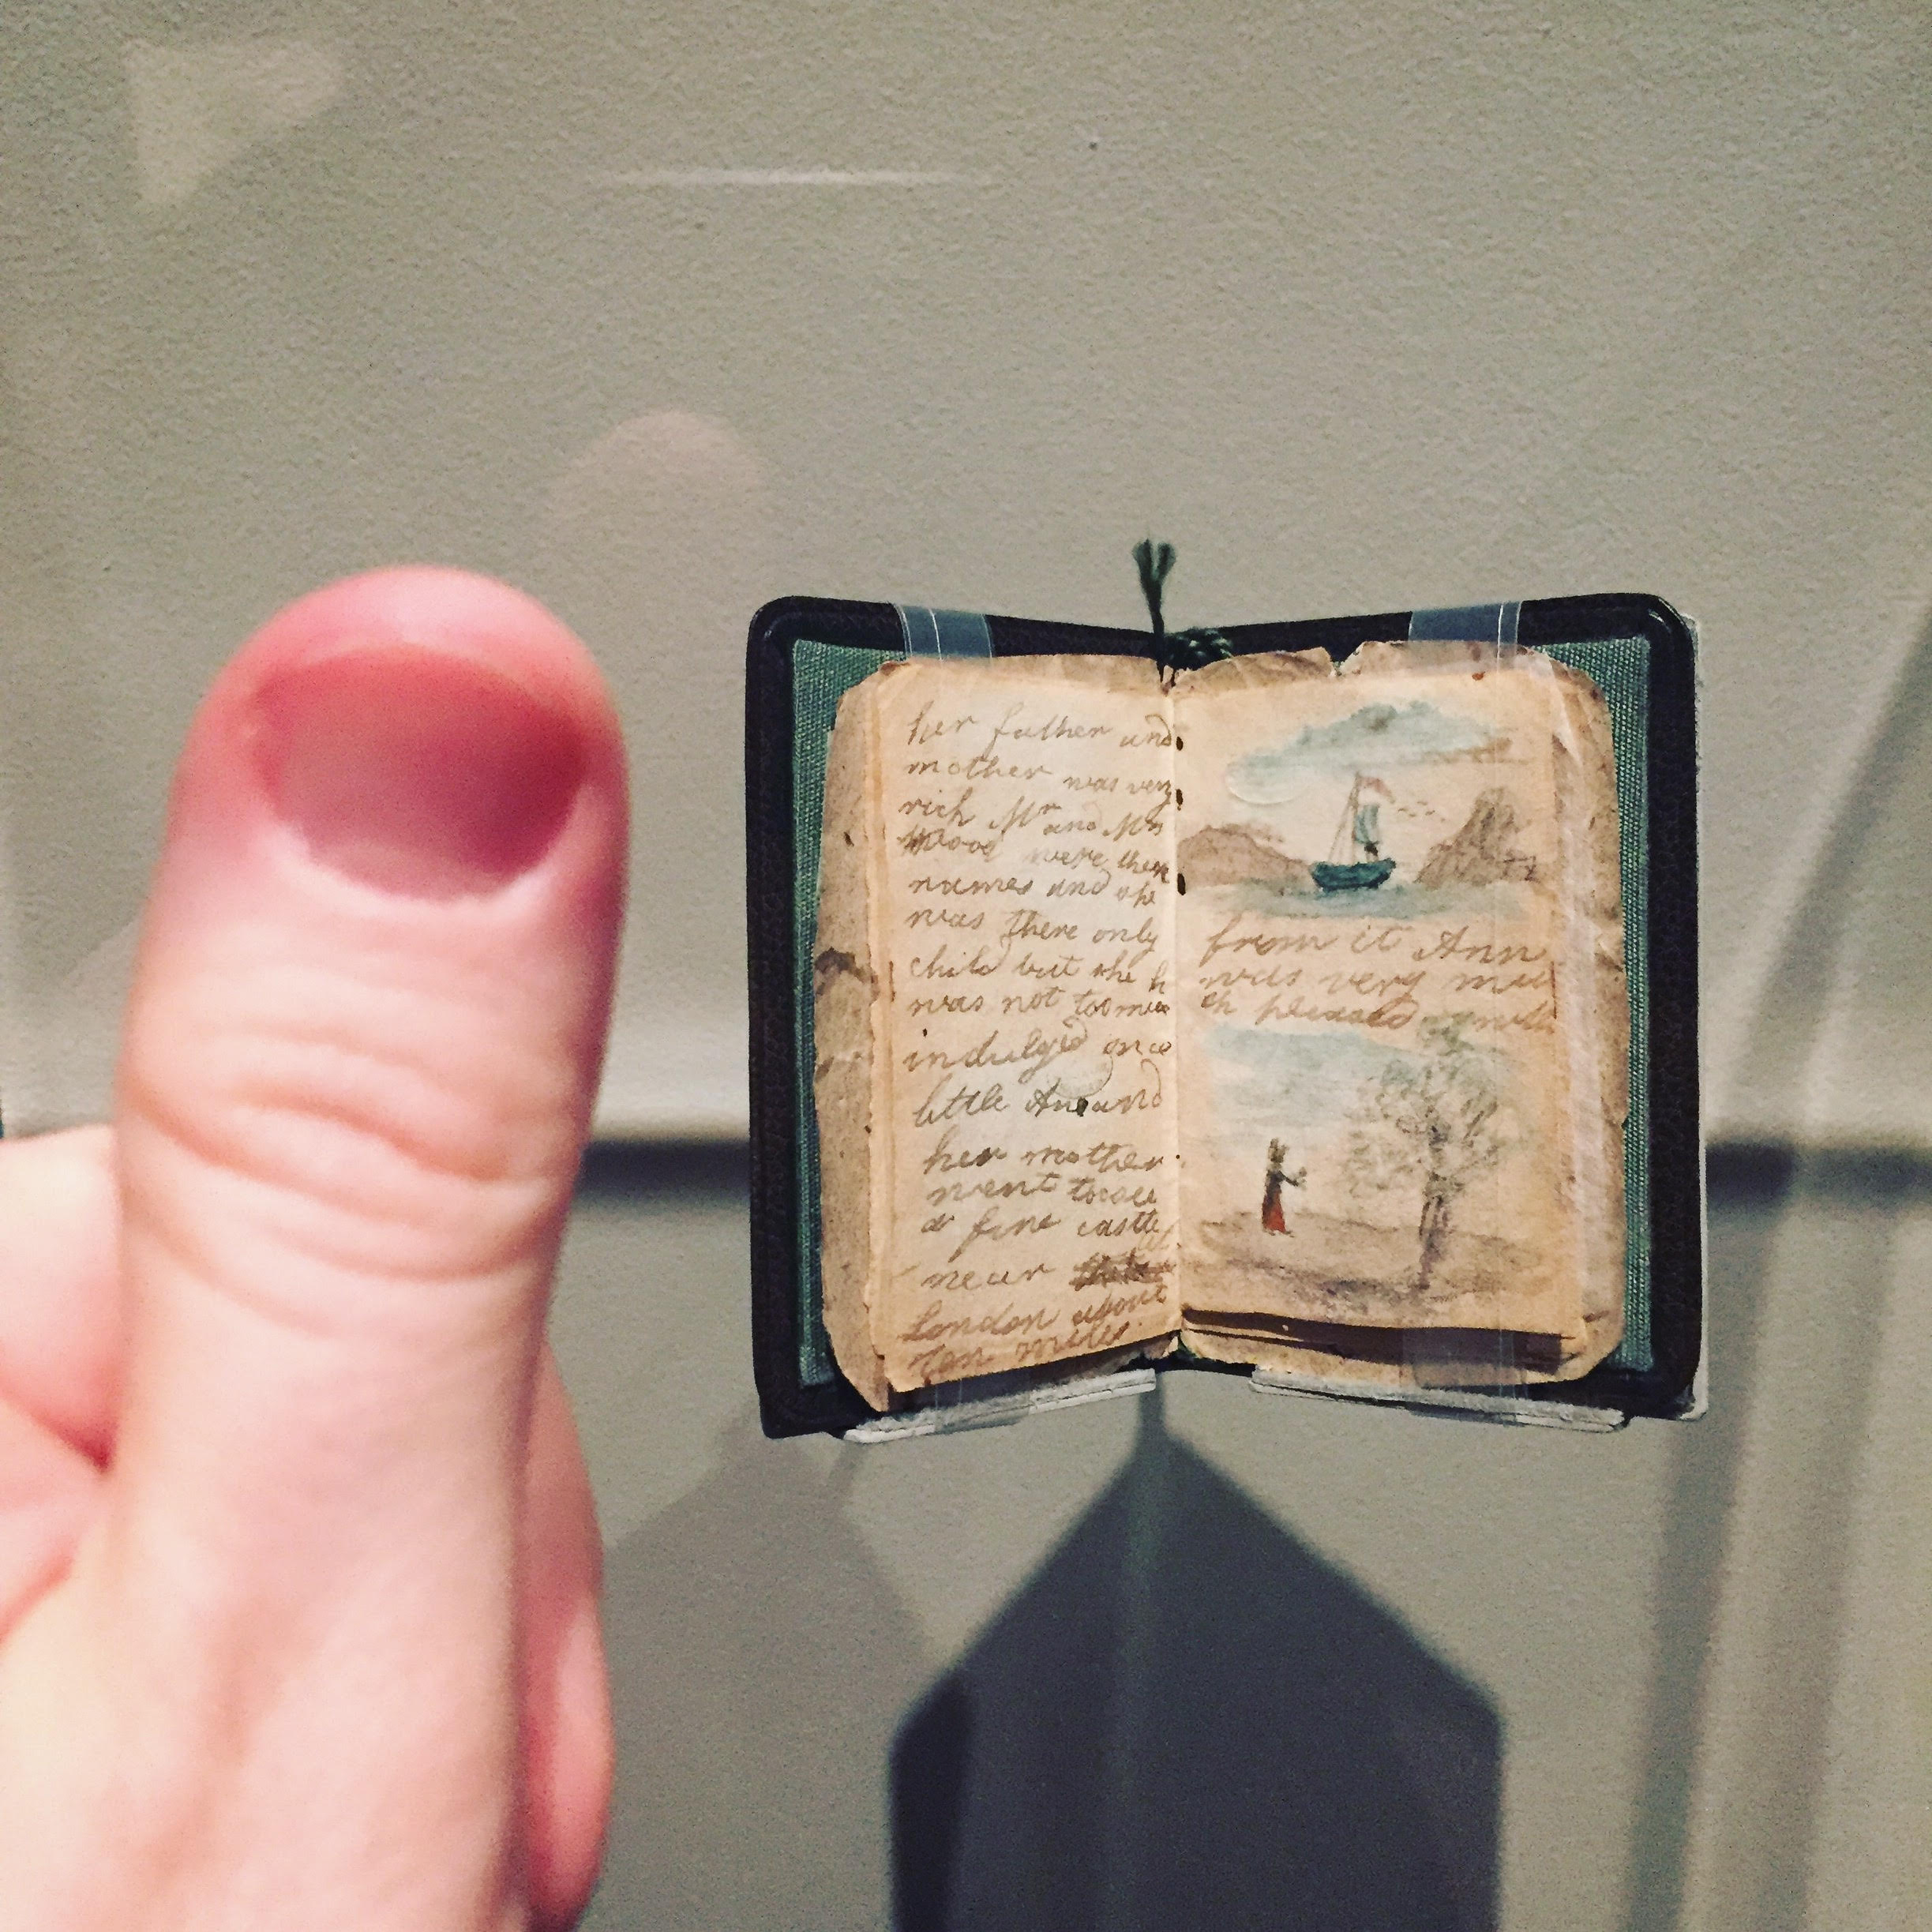 her father and
mother was very
rich Mr and Mrs
Wood were their
names and she
was there only
child but she h
was not too much
indulged once
little Ann and
her mother
went to see
a fine castle
near
London about
Ten miles
from it Ann
was very mu
ch pleased with